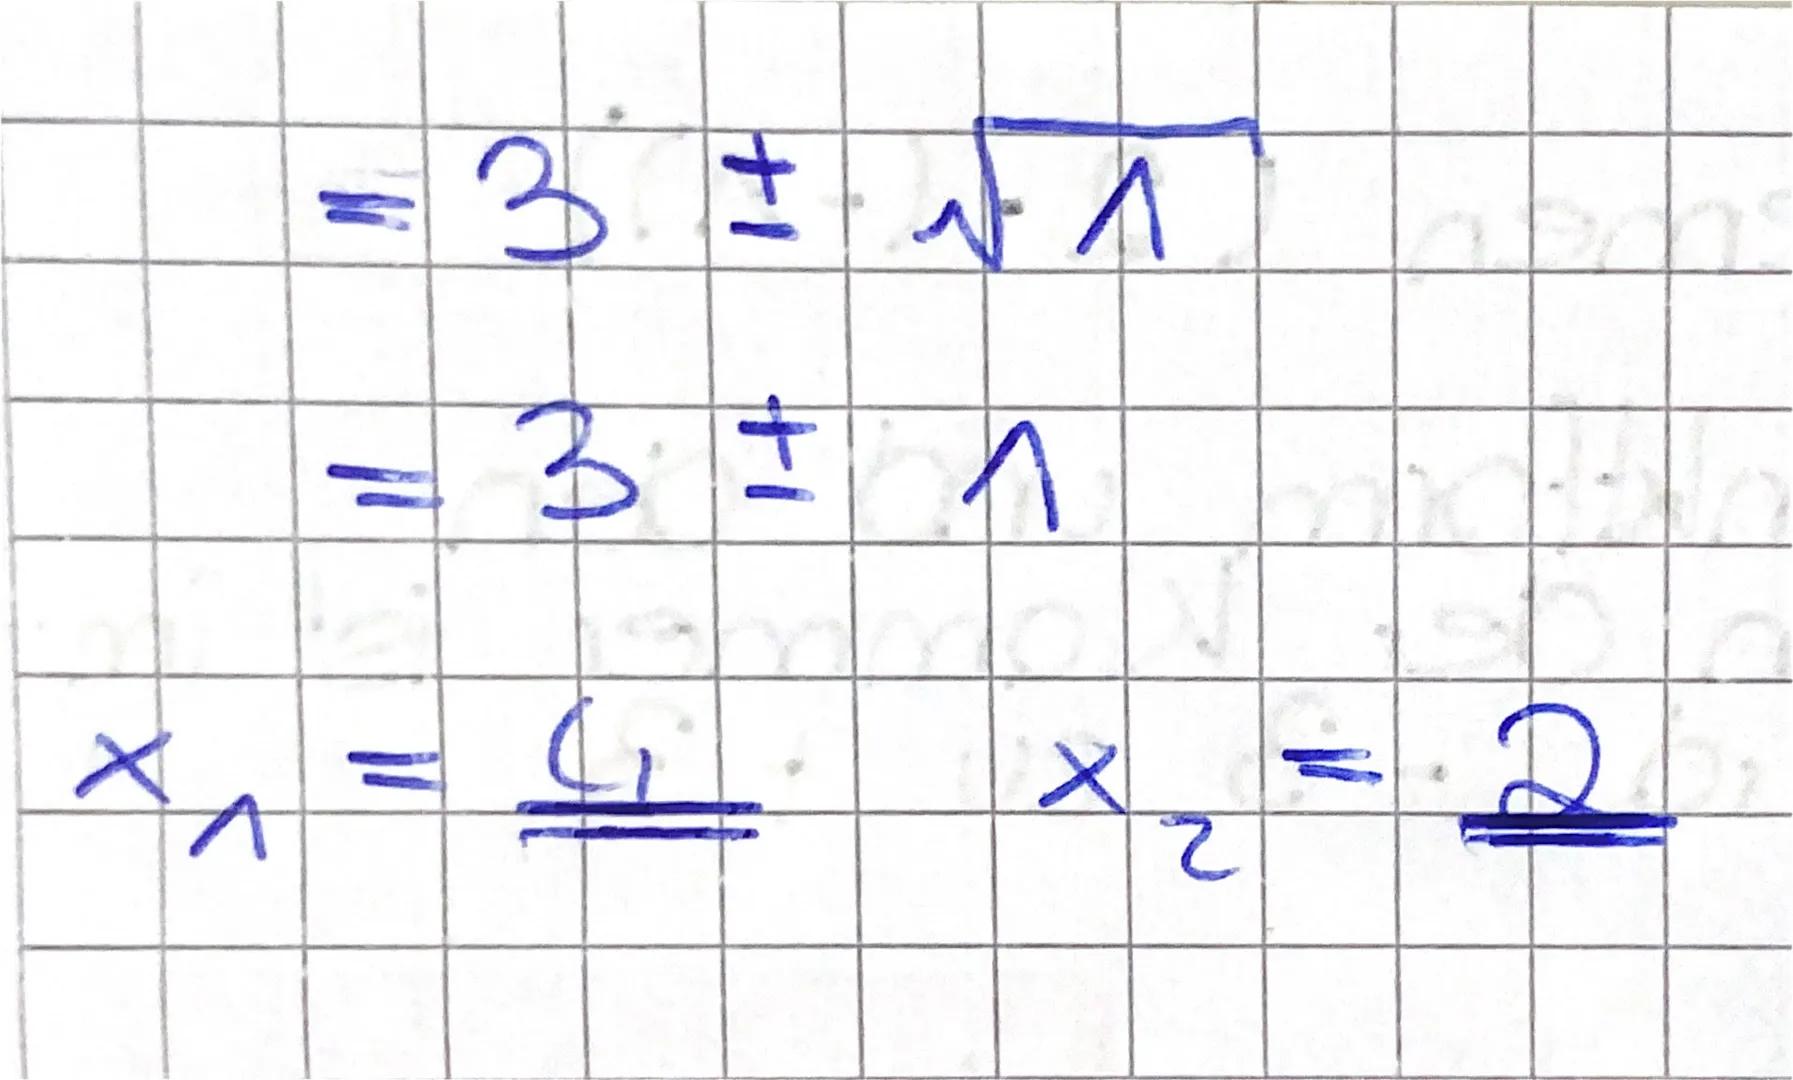 = 3 ± √1
= 3 ± 1
x₁ = 4 x₂ = 2